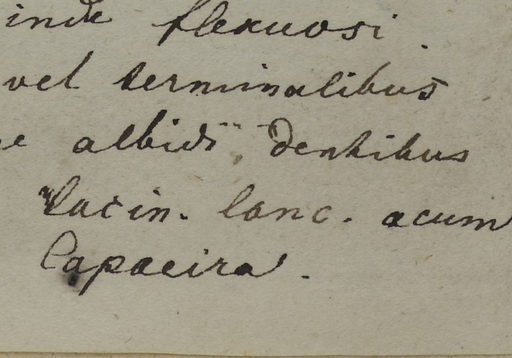 inde flexuosi
vel terminalibus
albidi, dentibus
lacin. lanc. acum
Capoeira.